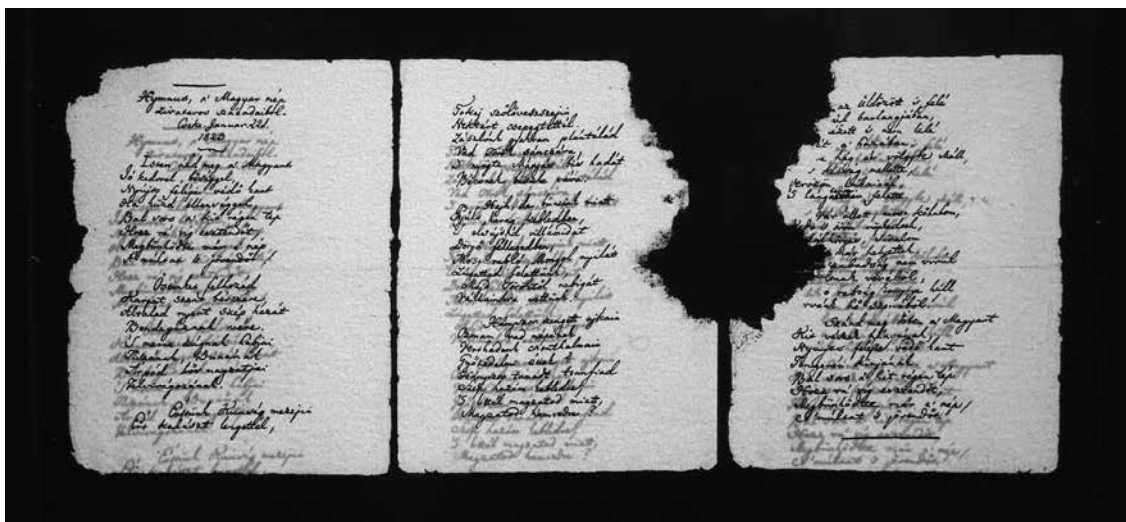 Hymnus, a' Magyar nép
zivataros századaiból.
Cseke. Januar. 22d.
1823
Isten áldd meg a' Magyart
Jó kedvvel, bőséggel,
Nyújts feléje védő kart
Ha küzd ellenséggel;
Bal sors a' kit régen tép
Hozz rá víg esztendőt,
Megbűnhődte már e' nép
A' múltat 's jövendőt!
Őseinket felhozád
Kárpát szent bérczére,
Általad nyert szép hazát
Bendegúznak vére.
'S merre zúgnak habjai
Tiszának, Dunának
Árpád hős magzatjai
Felvirágozának.
Értünk Kunság mezején
Ért kalászt lengettél,
Tokaj szőlővesszein
Nektárt csepegtettél.
Zászlónk gyakran plántálád
Vad Török sánczára,
'S nyögte Mátyás bús hadát
Bécsnek büszke vára.
Hajh, de bűneink miatt
Gyúlt harag kebledben,
'S elsújtád villámidat
Dörgő fellegedben,
Most rabló Mongol nyilát
Zúgattad felettünk,
Majd Töröktől rabigát
Vállainkra vettünk.
Hányszor zengett ajkain
Ozman vad népének
Vert hadunk csonthalmain
Győzedelmi ének!
Hányszor támadt tenfiad
Szép hazám kebledre,
'S lettél magzatod miatt,
Magzatod hamvvedre?
az üldözött 's felé
barlangjában,
nézett 's nem lelé
a' hazában.
hág és völgybe száll,
kétség mellette
Vérözön lábainál,
'S lángtenger felette.
Vár állott, most kőhalom,
'S öröm röpkedtek,
Halálhörgés, siralom
már helyettek.
szabadság nem virúl
véréből,
rabság könnye húll
hő szeméből!
Szánd meg Isten a' Magyart
Kit vészek hányának,
Nyújts feléje védő kart
Tengerén kínjának.
Bal sors a' kit régen tép
Hozz rá víg esztendőt,
Megbűnhődte már e' nép
A' múltat 's jövendőt!